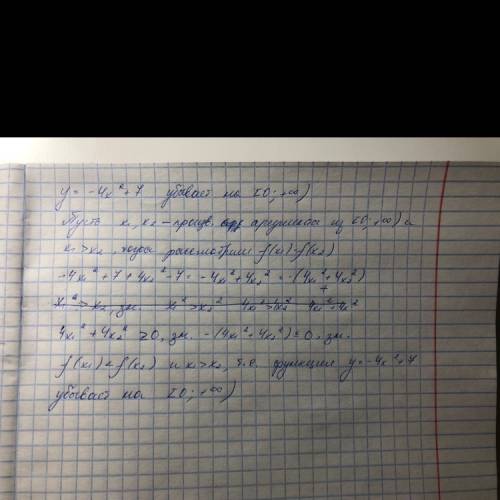 y = -4x²+7 убывает на [0; +∞)
Пусть x₁, x₂ - произв. аргументы из [0; +∞) и
x₁ > x₂, тогда рассмотрим f(x₁)-f(x₂)
-4x₁²+7+4x₂²-7 = -4x₁²+4x₂² = -(4x₁²+4x₂²)
x₁² > x₂, зн. x₁² > x₂² 4x₁² > 4x₂² 4x₁²+4x₂²
4x₁²+4x₂² ≥ 0, зн. -(4x₁²+4x₂²) ≤ 0, зн.
f(x₁) < f(x₂) и x₁ > x₂, т.е. функция y = -4x²+7
убывает на [0; +∞)